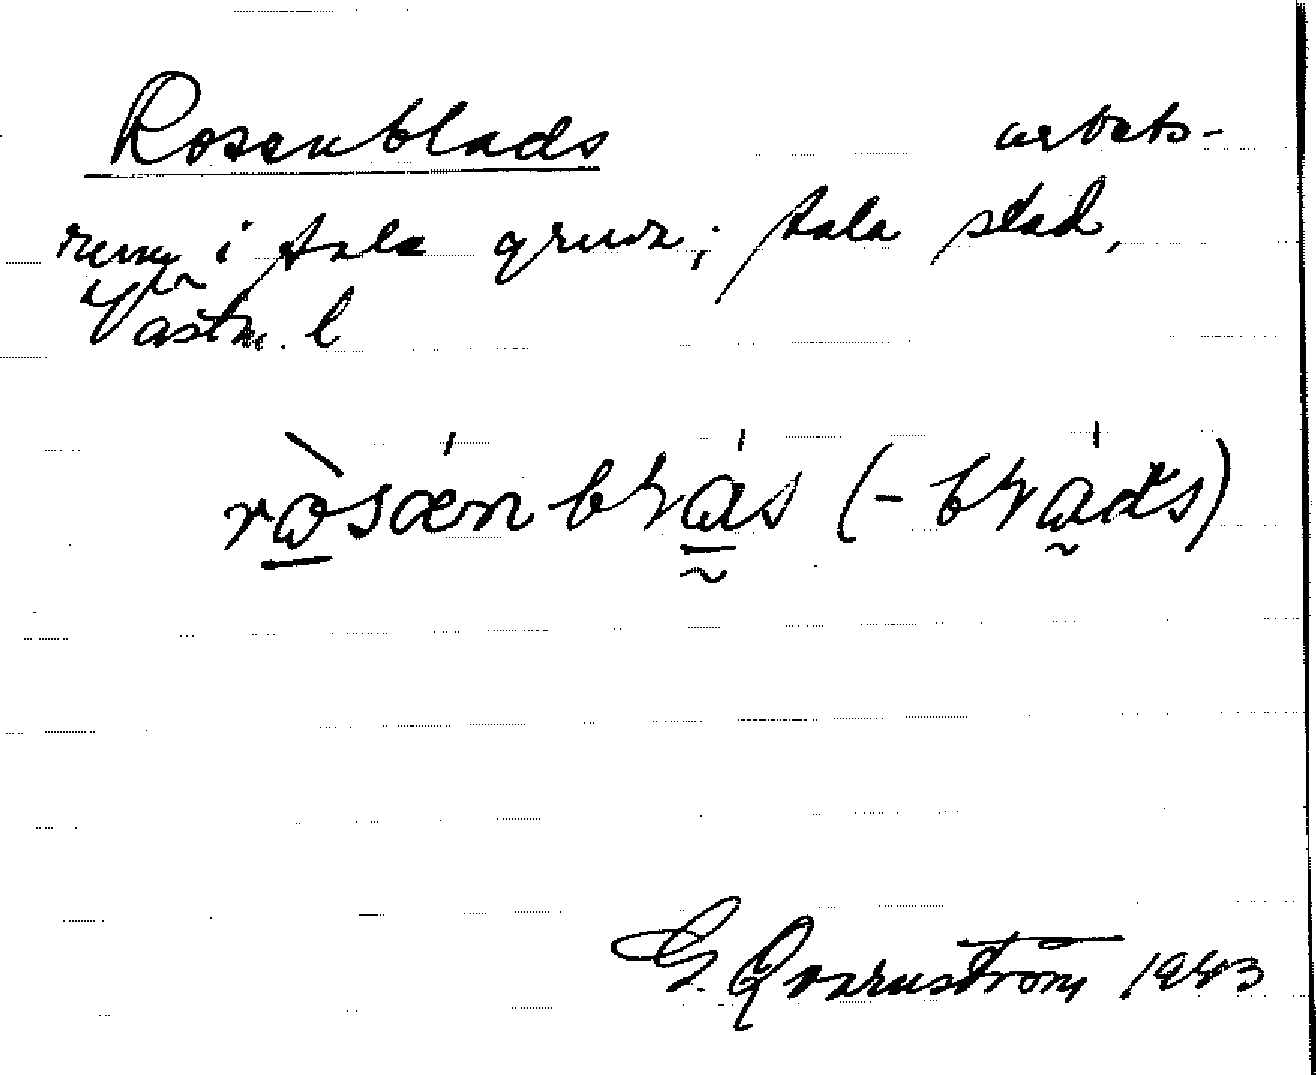 Rosenblads arbets-
rum i Sala gruva; Sala stad,
Västm. l
ròsænblás (-bláds)
G. Qvarnström 1943